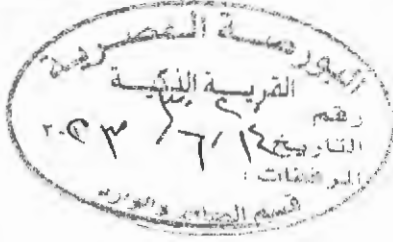 البورصة المصرية
القرية الذكية
رقم
التاريخ ٢٤ / ٦ / ٢٠٢٣
المرفقات :
قسم الصادر والوارد